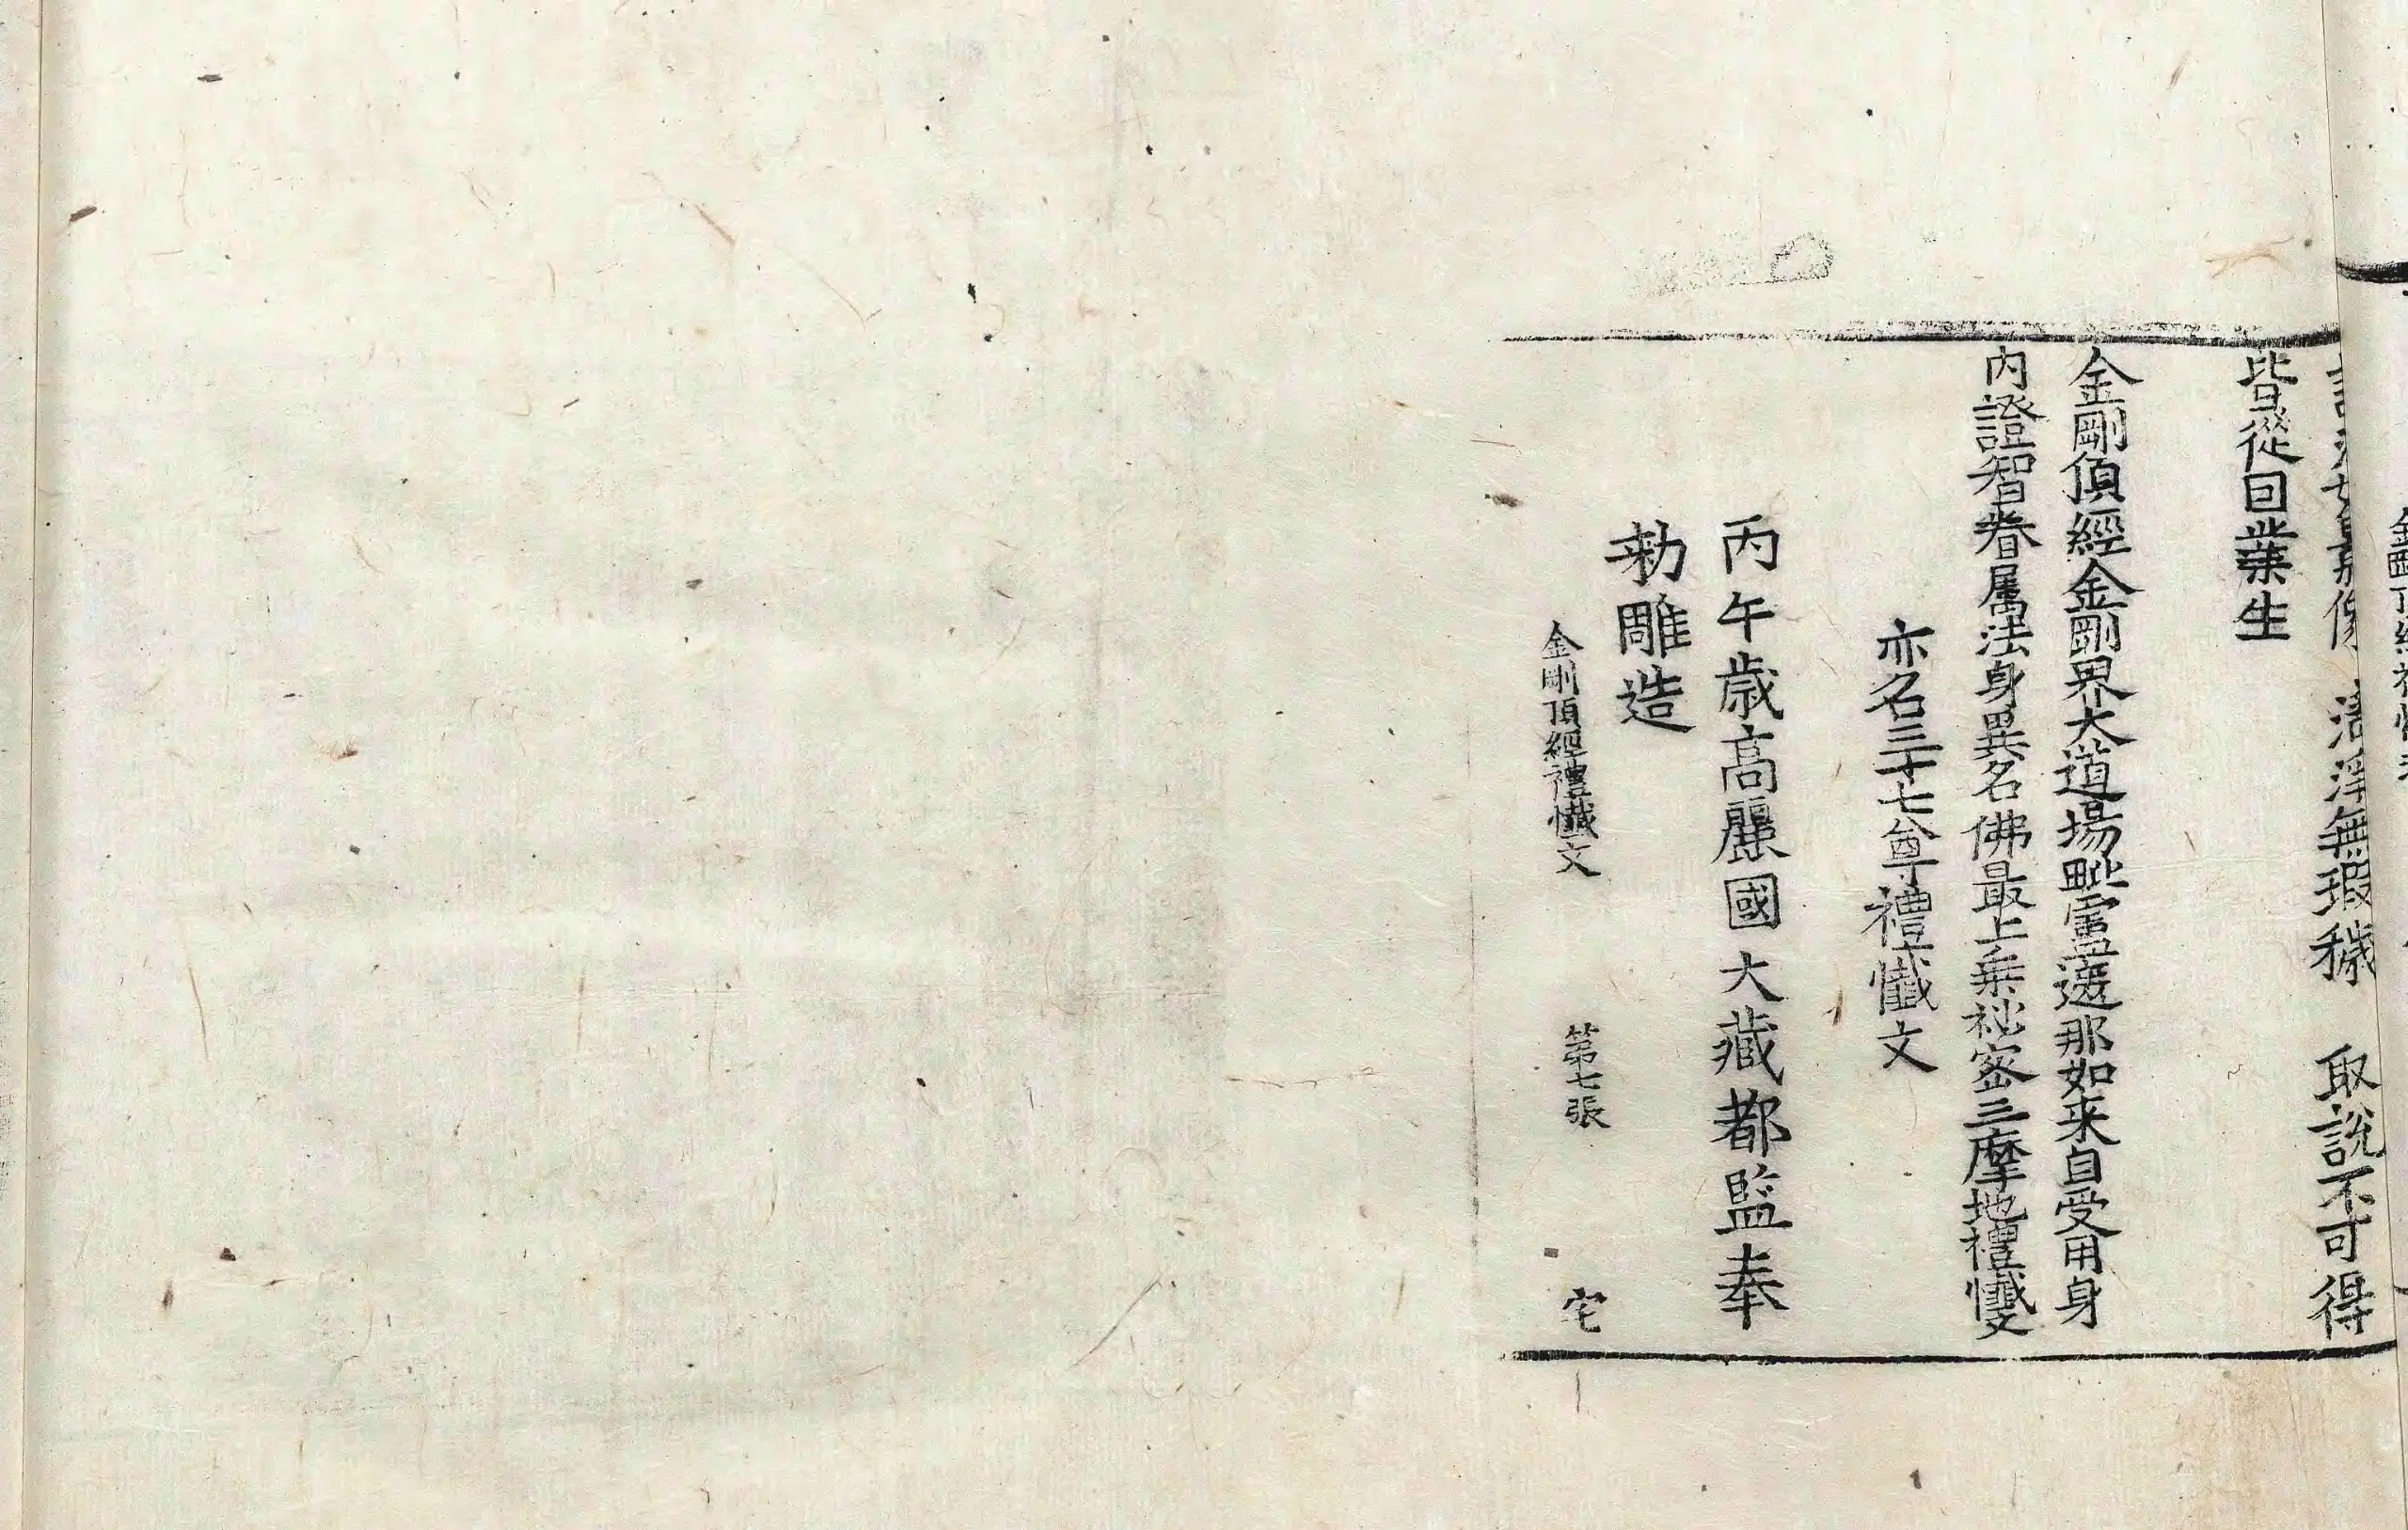 清淨無瑕穢 取說不可得
皆從因業生
金剛頂經金剛界大道場毗盧遮那如来自受用身
內證智眷属法身異名佛最上乗秘密三摩地禮懺文
亦名三十七尊禮懺文
丙午歳高麗國大藏都監奉
勑雕造
金剛頂經禮懺文 第七張 宅